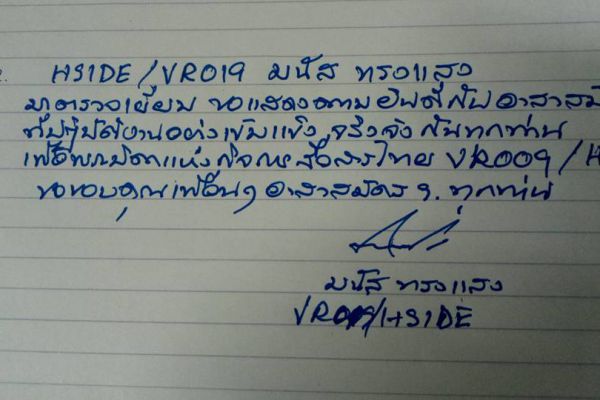 HS1DE/VR019 มนัส ทรงแสง
มาตรวจเยี่ยม ขอแสดงความยินดีกับ อาสาสมั
ที่ปฏิบัติงานอย่างเข้มแข็ง จริงจัง กันทุกท่าน
เพื่อพระบิดาแห่งกิจการสื่อสารไทย VR009/H
ขอขอบคุณเพื่อนๆ อาสาสมัคร ว. ทุกท่าน
มนัส ทรงแสง
/HS1DE